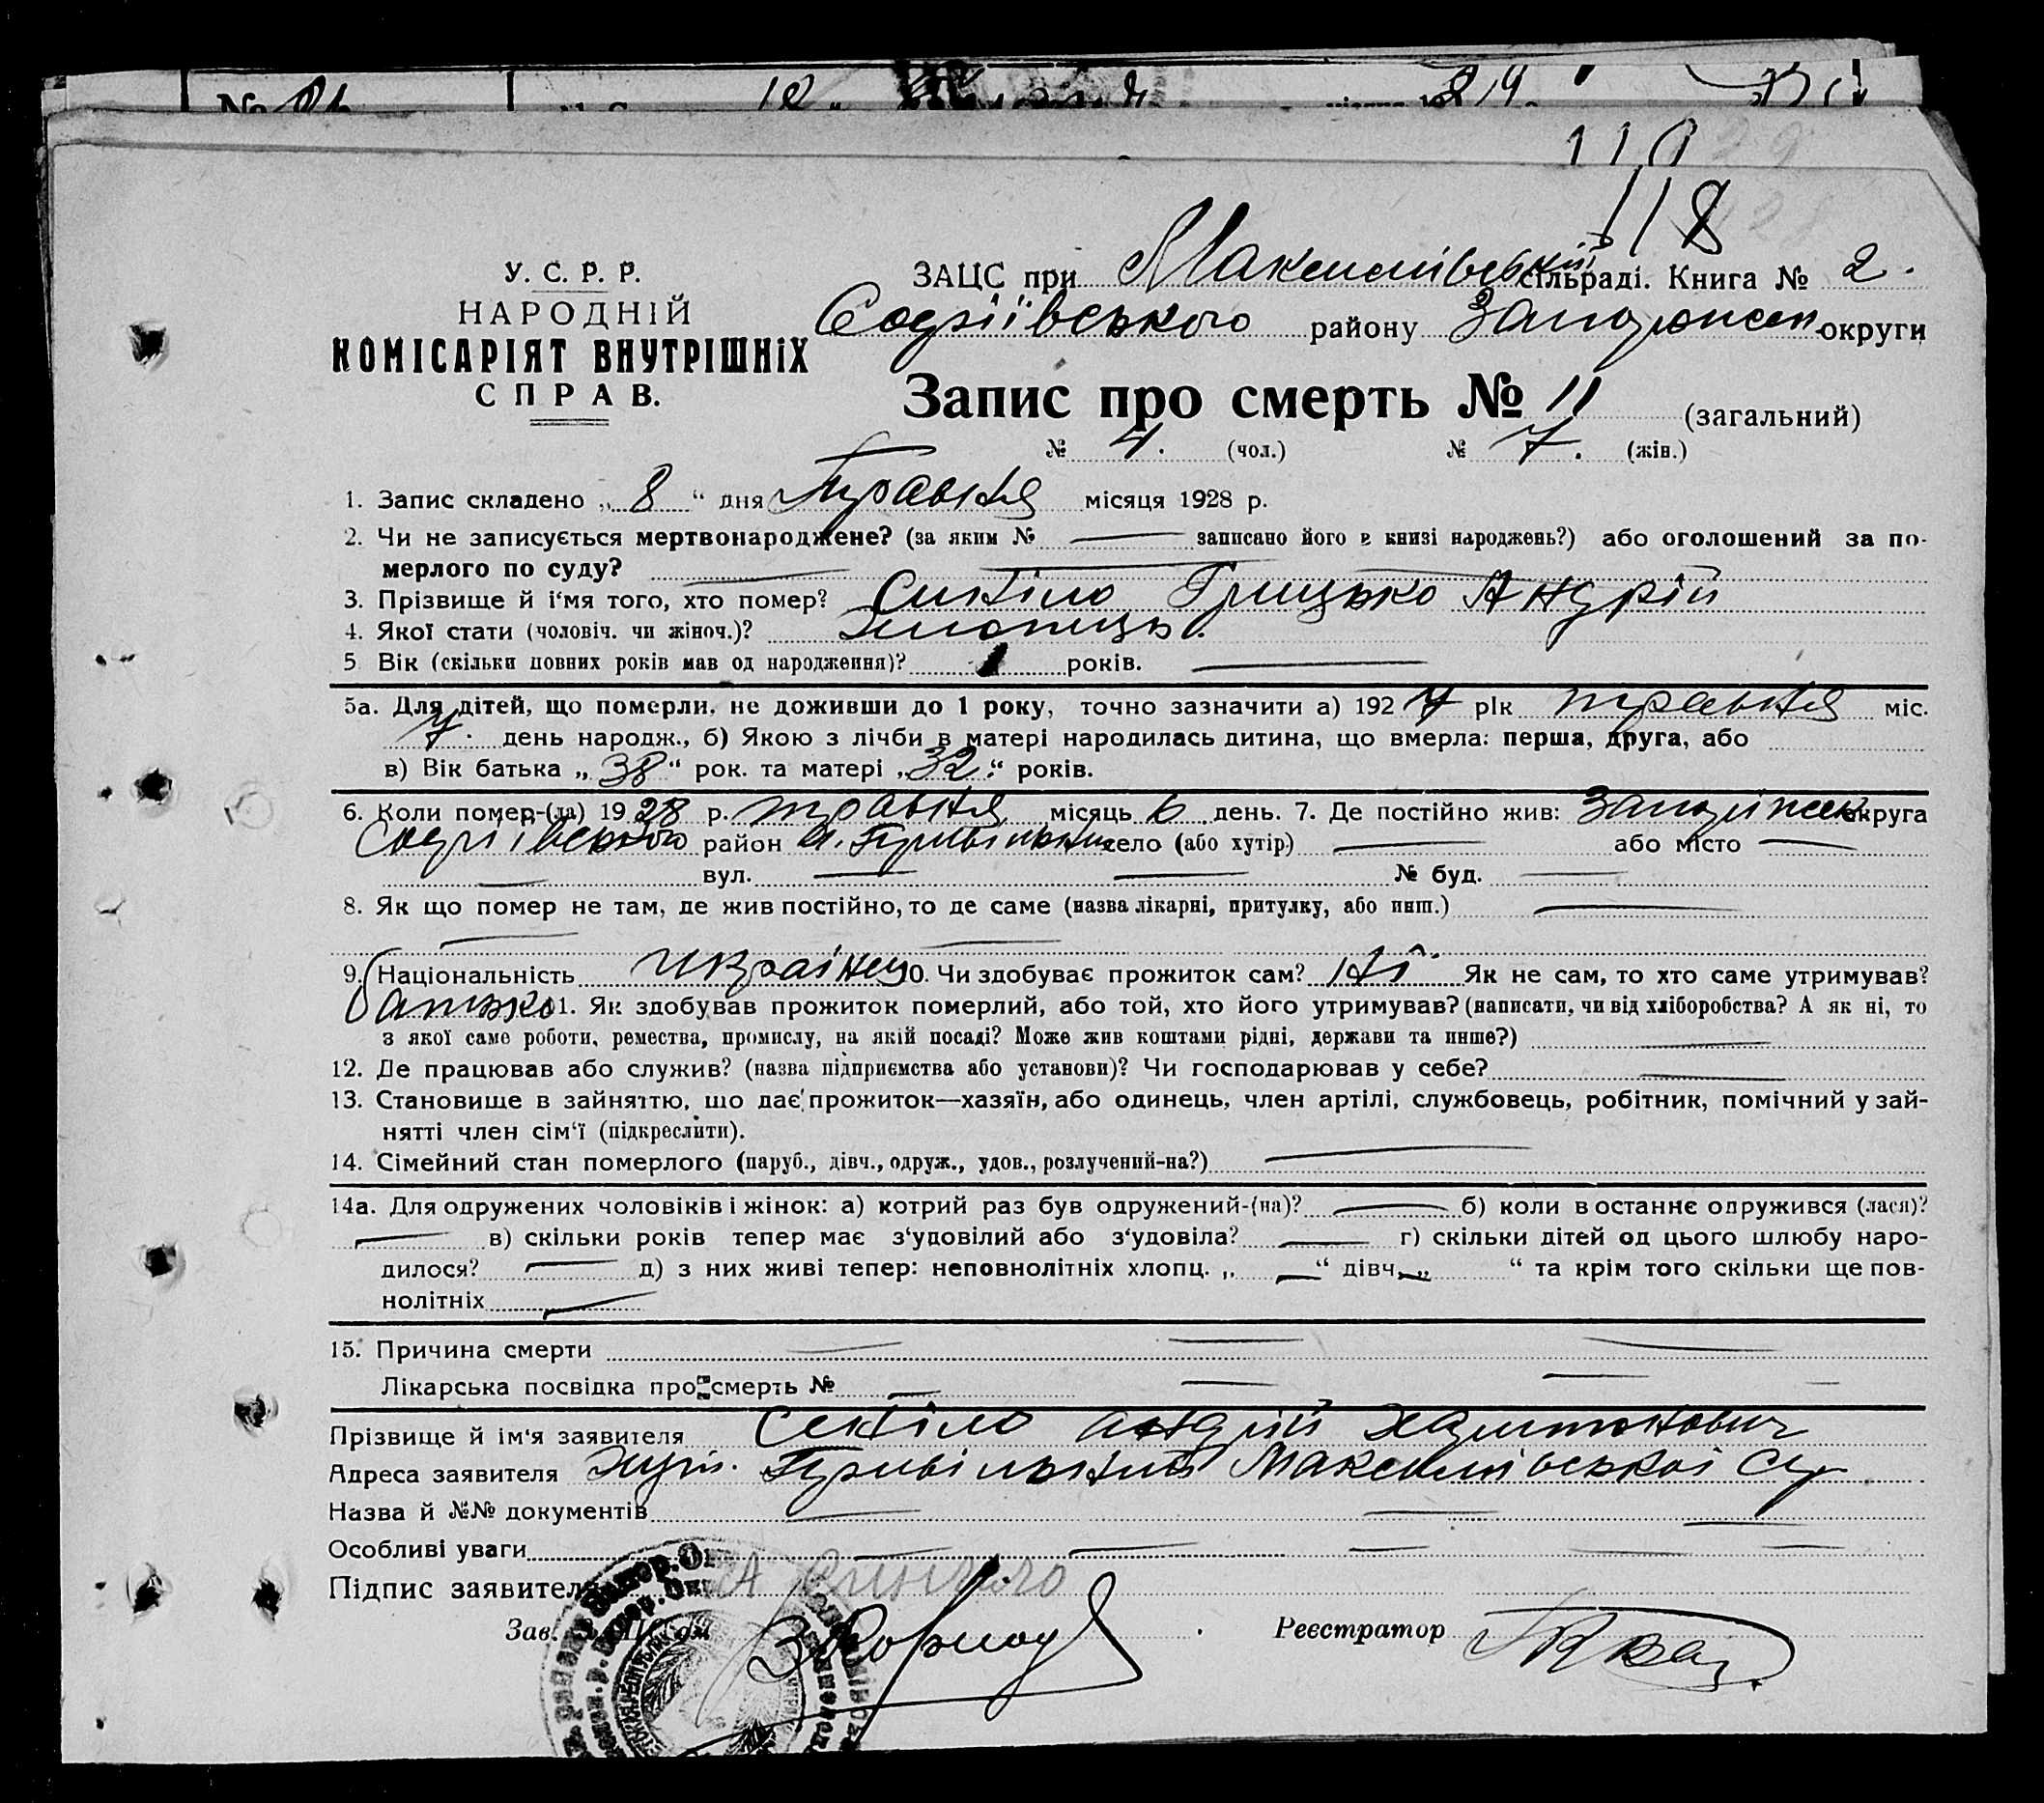 118
У. С. Р. Р.
НАРОДНІЙ
КОМІСАРІЯТ ВНУТРІШНІХ
СПРАВ.
ЗАЦС при Максимівській сільраді. Книга № 2.
Софіївського району Запоріжськ. округи
Запис про смерть № 11 (загальний)
№ 4. (чол.) № 7. (жін.)
1. Запис складено „ 8 “ дня Травня місяця 1928 р.
2. Чи не записується мертвонароджене? (за яким № — записано його в книзі народжень?) або оголошений за по-
мерлого по суду? —
3. Прізвище й і'мя того, хто помер? Грицько Андрій
4. Якої стати (чоловіч. чи жіноч.)? Хлопець.
5 Вік (скільки повних років мав од народження)? років. —
5а. Для дітей, що померли, не доживши до 1 року, точно зазначити а) 1927 рік травня міс.
7. день народж., б) Якою з лічби в матері народилась дитина, що вмерла: перша, друга, або
в) Вік батька „ 38 “ рок. та матері „ 32. “ років.
6. Коли помер-(ла) 1928 р. травня місяць 6 день. 7. Де постійно жив: округа
Софіївського район село (або хутір) — або місто —
— вул. — — № буд. —
8. Як що помер не там, де жив постійно, то де саме (назва лікарні, притулку, або инш.) —
— —
9. Національність українець 10. Чи здобуває прожиток сам? ні Як не сам, то хто саме утримував?
батько 11. Як здобував прожиток померлий, або той, хто його утримував? (написати, чи від хліборобства? А як ні, то
з якої саме роботи, ремества, промислу, на якій посаді? Може жив коштами рідні, держави та инше?) —
12. Де працював або служив? (назва підприємства або установи)? Чи господарював у себе? —
13. Становище в зайняттю, що дає прожиток—хазяїн, або одинець, член артілі, службовець, робітник, помічний у зай-
нятті член сім'ї (підкреслити).
14. Сімейний стан померлого (паруб., дівч., одруж., удов., розлучений-на?) —
14а. Для одружених чоловіків і жінок: а) котрий раз був одружений-(на)? — б) коли востаннє одружився (лася)?
— в) скільки років тепер має з'удовілий або з'удовіла? — г) скільки дітей од цього шлюбу наро-
дилося? — д) з них живі тепер: неповнолітніх хлопц. „ — “ дівч. „ “ та крім того скільки ще пов-
нолітніх —
15. Причина смерти — — —
Лікарська посвідка про смерть № — — — —
Прізвище й ім'я заявителя Андрій Харитонович
Адреса заявителя Хут. Привільний Максимівської С/р
Назва й №№ документів — — —
Особливі уваги — — — — —
Підпис заявителя А
Зав. ЗАЦСом
Реєстратор